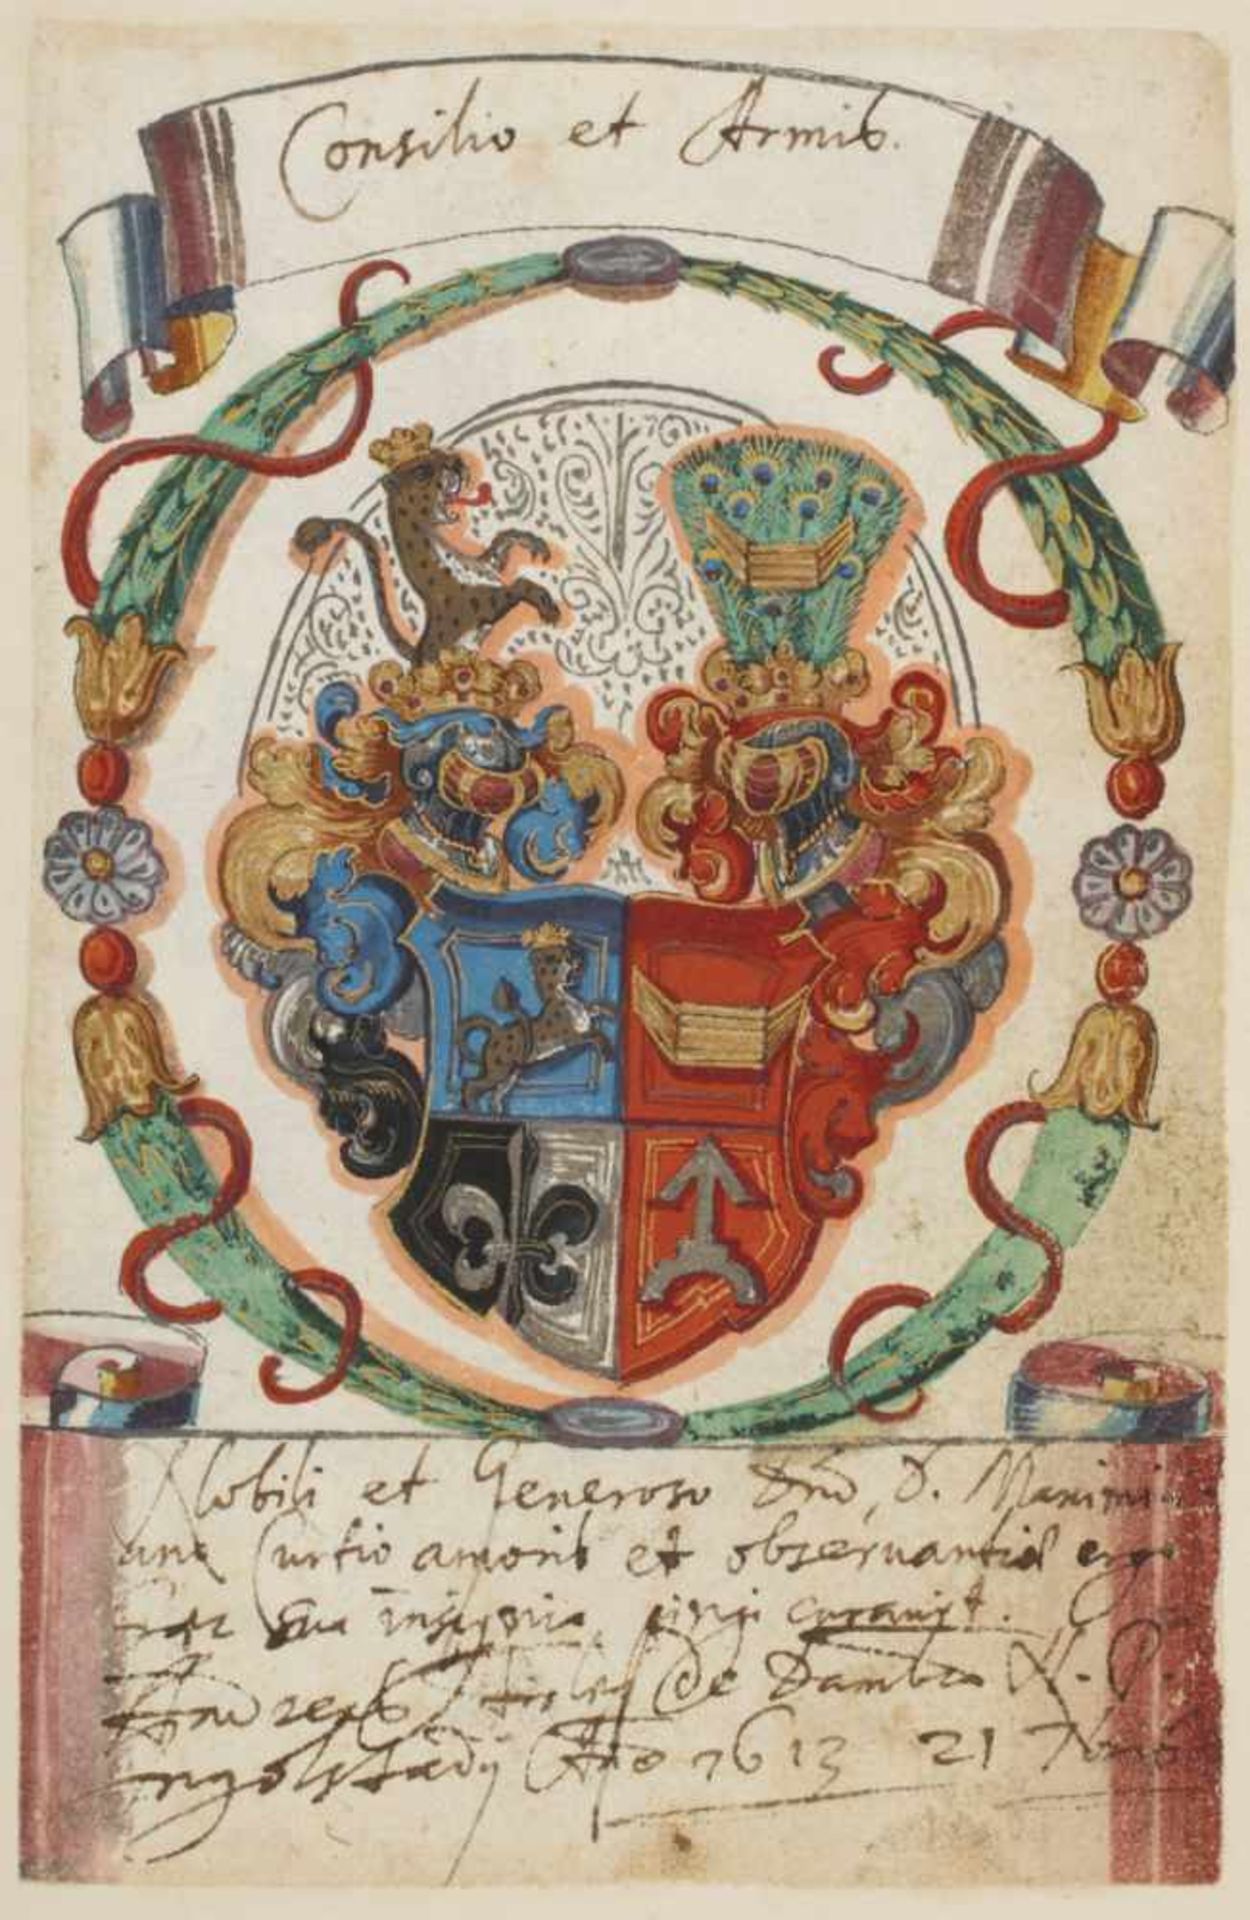 Consilio et Armis.
Nobili et Generoso Dno, D. Maximi
ano Curtio amoris et obseruantiæ ergo
haec sua insignia pingi curauit.
Andreas de Dambro N. P.
Ingolstadij Ano 1613 21 7bris